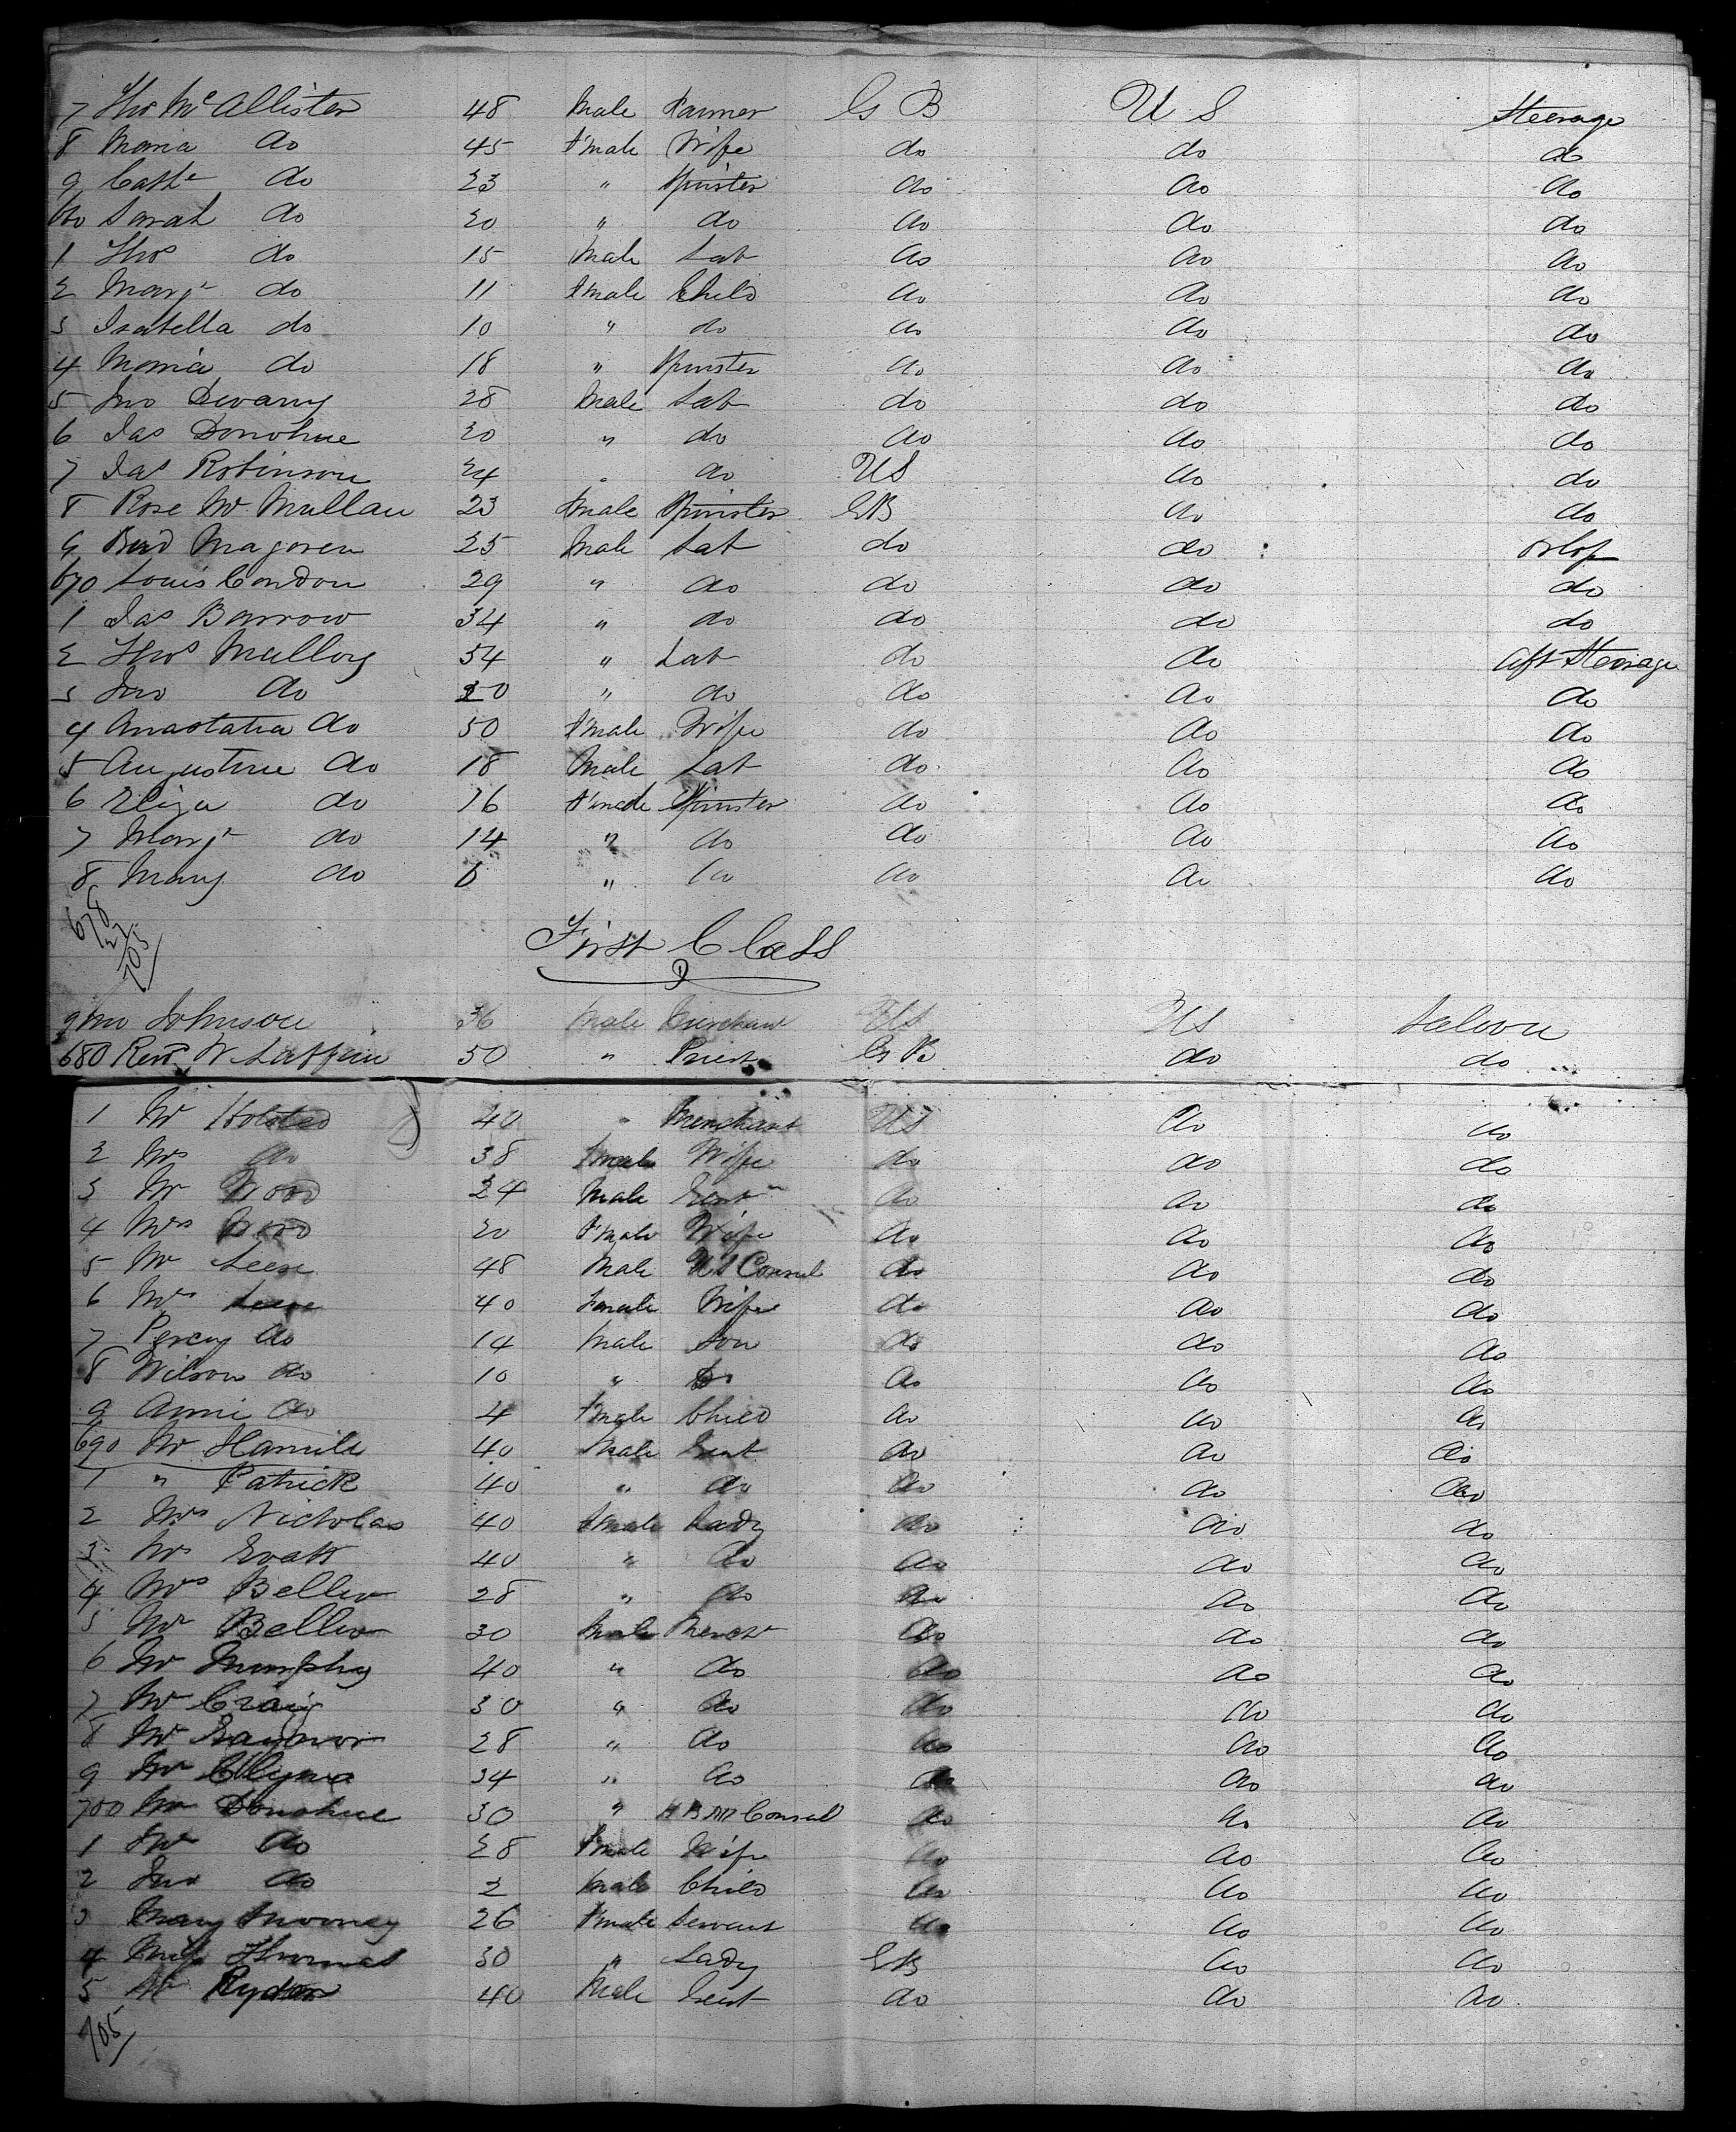 7 Thos McAllister 48 Male Farmer G B U S Steerage
8 Maria do 45 Fmale Wife do do do
9 Cathe do 23 " Spinster do do do
660 Sarah do 20 " do do do do
1 Thos do 15 Male Lab do do do
2 Margt do 11 Fmale Child do do do
3 Isabella do 10 " do do do do
4 Maria do 18 " Spinster do do do
5 Jno Devany 28 Male Lab do do do
6 Jas Donohue 20 " do do do do
7 Jas Robinson 24 " do US do do
8 Rose Mc Mullan 23 Fmale Spinster GB do do
9 Bnd Magoven 25 Male Lab do do Orlop
670 Louis Condon 29 " do do do do
1 Jas Barrow 34 " do do do do
2 Thos Malloy 54 " Lab do do Aft Steerage
3 Jno do 20 " do do do do
4 Anastatia do 50 Fmale Wife do do do
5 Augustine do 18 Male Lab do do do
6 Eliza do 16 Fmale Spinster do do do
7 Margt do 14 " do do do do
8 Mary do 6 " do do do do
678
27
705
First Class
9 Johnson 36 Male Merchant US US Saloon
680 Revd W Laffan 50 " Priest G B do do
1 Mr Holsted 40 " Merchant US do do
2 Mrs do 38 Fmale Wife do do do
3 Mr 24 Male Gentn do do do
4 Mrs 20 Fmale Wife do do do
5 Mr Leese 48 Male U S Consul do do do
6 Mrs Leese 40 Female Wife do do do
7 Percy do 14 Male Son do do do
8 Wilson do 10 " Do do do do
9 Annie do 4 Fmale Child do do do
690 Mr Hamill 40 Male Gent do do do
1 " Patrick 40 " do do do do
2 Mrs Nicholas 40 Fmale Lady do do do
3 Mrs Evatt 40 " do do do do
4 Mrs Bellew 28 " do do do do
5 Mr Bellew 30 Male Mercht do do do
6 Mr Murphy 40 " do do do do
7 Mr Craig 30 " do do do do
8 Mr 28 " do do do do
9 Mr 34 " do do do do
700 Mr Donohue 30 " H B M Consul do do do
1 Mrs do 28 Fmale Wife do do do
2 Jno do 2 Male Child do do do
3 Mary Mooney 26 Fmale Servant do do do
4 Miss Thomas 30 " Lady GB do do
5 Mr Ryder 40 Male Gent do do do
705